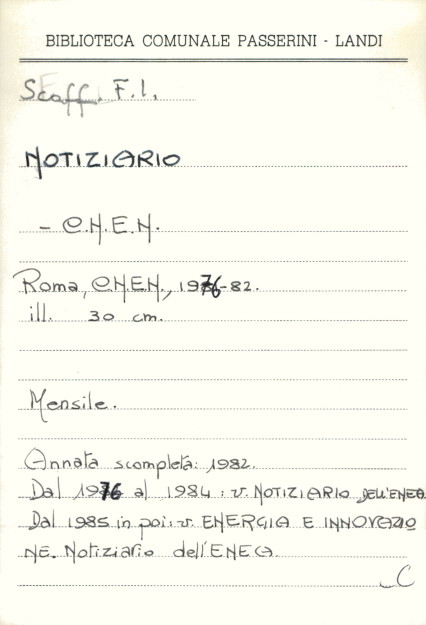 BIBLIOTECA COMUNALE PASSERINI - LANDI
Scaff. F.1.
NOTIZIARIO
- C.N.E.N.
Roma, C.N.E.N., 1976-82.
ill. 30 cm.
Mensile.
Annata scompleta: 1982.
Dal 1976 al 1984: v. NOTIZIARIO DELL'ENEA
Dal 1985 in poi: v. ENERGIA E INNOVAZIO
NE. Notiziario dell'ENEA.
C